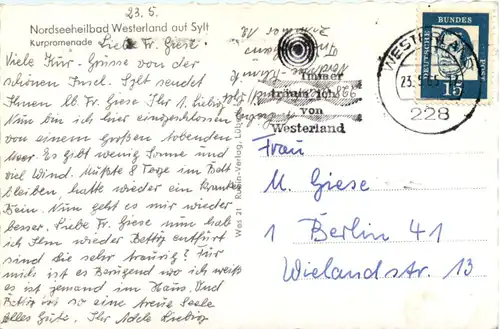 23.5.
Nordseeheilbad Westerland auf Sylt
Kurpromenade
Liebe Fr. Giese!
Viele Kur-Grüsse von der
schönen Insel Sylt sendet
Ihnen lb. Fr. Giese Ihr 1. Liebig.
Nun bin ich hier eingeschlossen
von einem großen tobenden
Meer. Es gibt wenig Sonne und
viel Wind. Mußte 8 Tage im Bett
bleiben, hatte wieder ein krankes
Bein. Nun geht es mir wieder
besser. Liebe Fr. Giese nun hab
ich Ihn wieder entführt
sind Sie sehr traurig? Für
mich ist es Beruigend wo ich weiß
es ist jemand im Haus. Und
ist so eine treue Seele
Alles Gute. Ihr Adele Liebig
Immer
von
Westerland
WESTERLAND
23.5.
228
DEUTSCHE
BUNDES
POST
15
Frau
M. Giese
1 Berlin 41
Wielandstr. 13
Wes 21